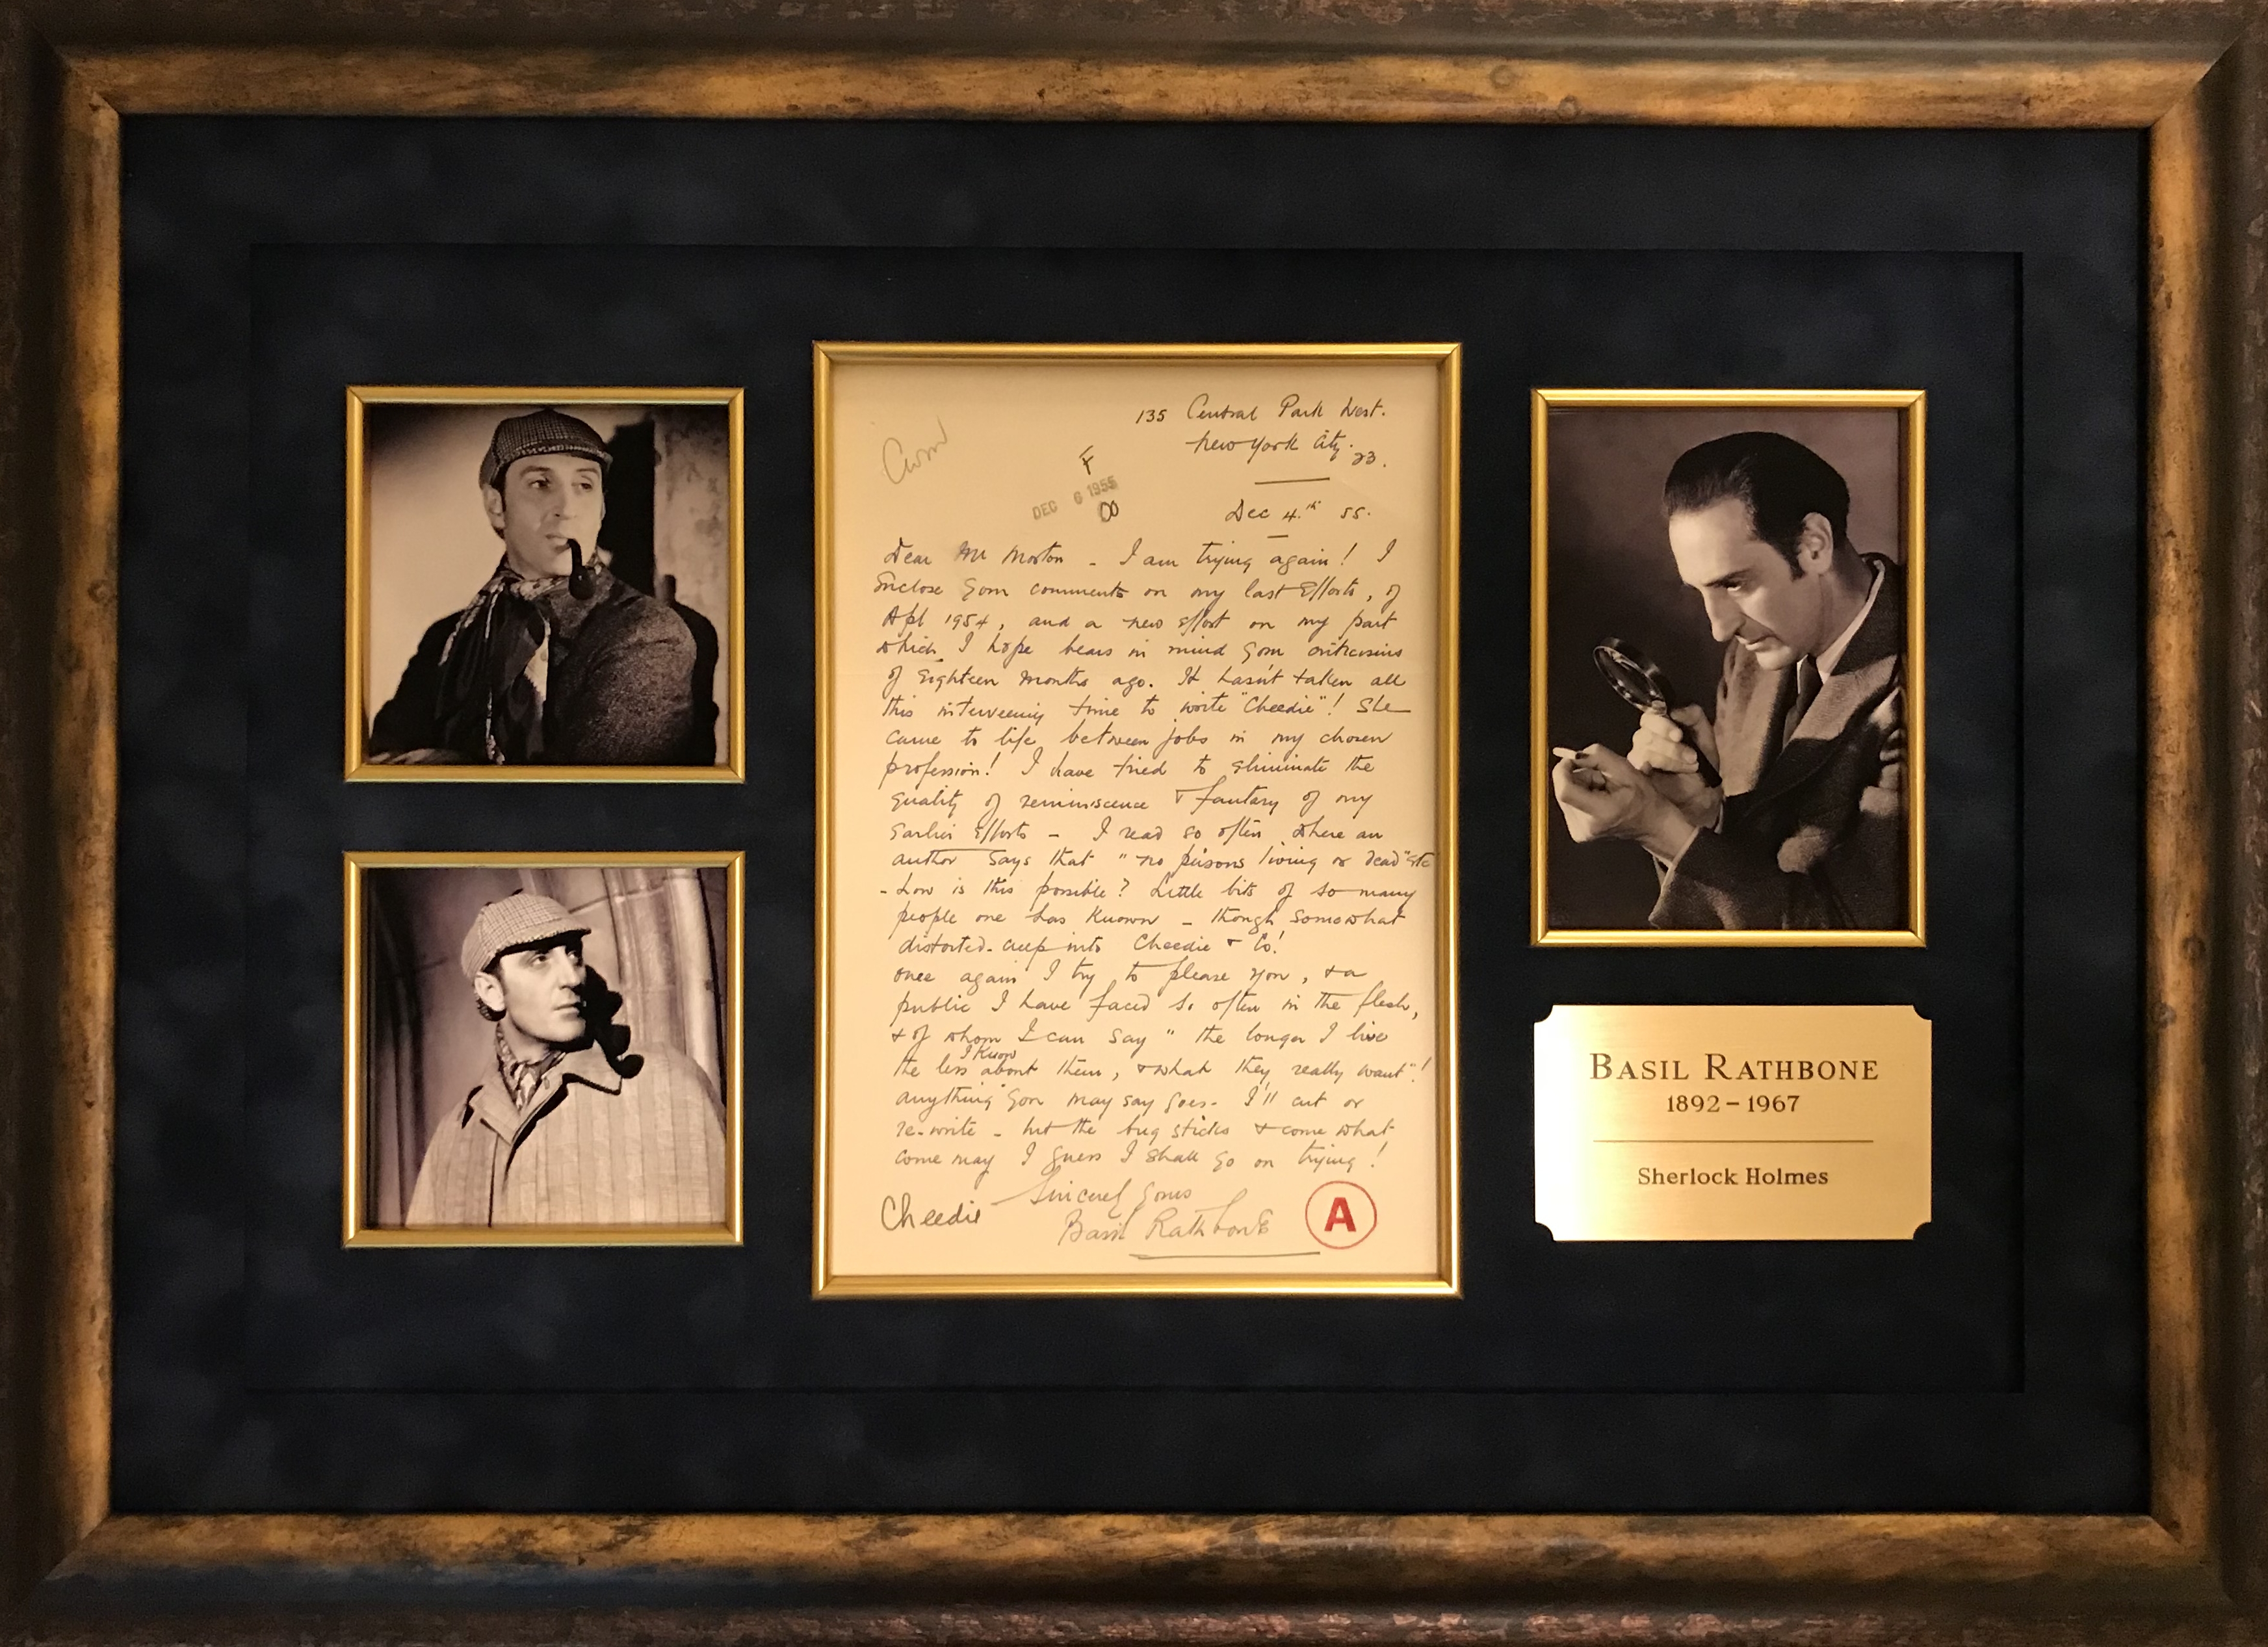 135 Central Park West.
New York City. 23.
F
DEC 6 1955
Dec 4.th 55.
Dear Mr Morton - I am trying again! I
enclose your comments on my last efforts, of
Apl 1954, and a new effort on my part
which I hope bears in mind your criticisms
of eighteen months ago. It hasn't taken all
this interveening time to write "Cheedie"! She
came to life between jobs in my chosen
profession! I have tried to eliminate the
quality of reminiscence & fantasy of my
earlier efforts - I read so often where an
author says that "no persons living or dead" etc
- how is this possible? Little bits of so many
people one has known - though somewhat
distorted - creep into Cheedie & Co!
once again I try to please you, & a
public I have faced so often in the flesh,
& of whom I can say "the longer I live
the less I know about them, & what they really want"!
anything you may say goes - I'll cut or
re-write - but the bug sticks & come what
come may I guess I shall go on trying!
Sincerely yours
Cheedie
Basil Rathbone
A
BASIL RATHBONE
1892–1967
Sherlock Holmes